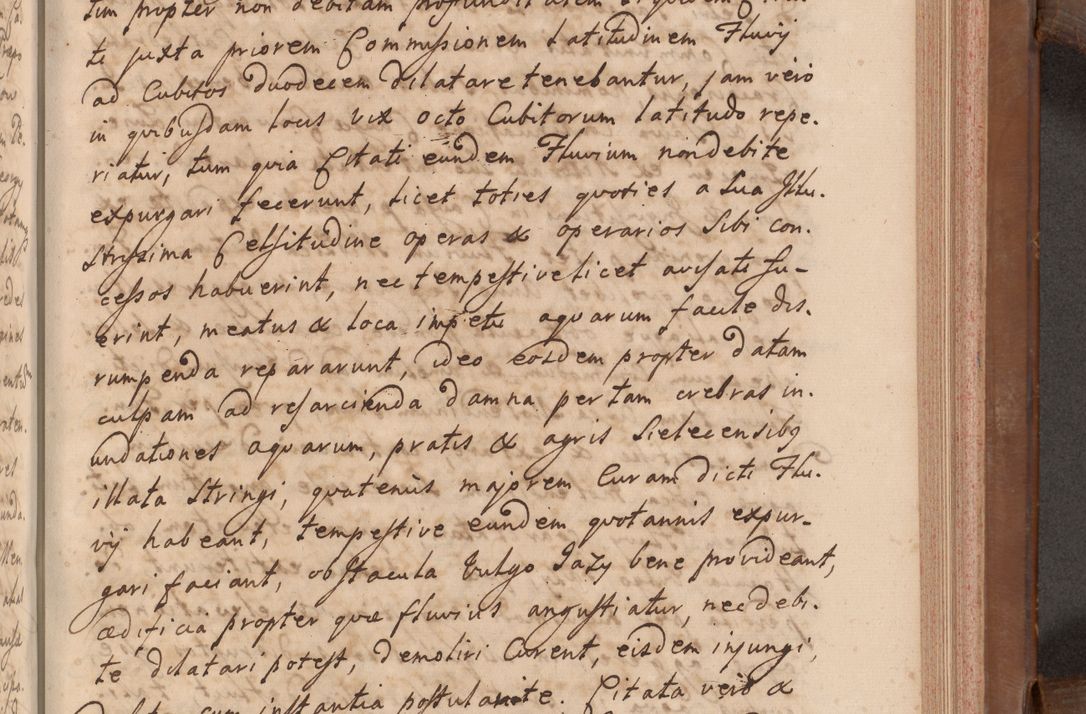 tim propter non debitam profunditatem siquidem Cita-
ti juxta priorem Commissionem Latitudinem Fluvij
ad Cubitos duodecem dilatare tenebantur, jam vero
in quibusdam locis vix octo Cubitorum latitudo repe-
riatur, tum quia Citati eundem Fluvium non debite
expurgari fecerunt, licet toties quoties a Sua Illu-
strissima Celsitudine operas & operarios Sibi con-
cessos habuerint, nec tempestive licet avisati fu-
erint, meatus & loca impetu aquarum facile dis-
rumpenda repararunt, ideo eosdem propter datam
culpam ad resarcienda damna per tam crebras in-
undationes aquarum, pratis & agris Sielecensibus
illata Stringi, quatenus majorem Curam dicti Flu-
vij habeant, tempestive eundem quotannis expur-
gari faciant, obstacula Vulgo Jazy bene provideant,
ædificia propter quæ fluvius angustiatur, nec debi-
te dilatari potest, demoliri Curent, eisdem injungi,
cum instantia postulante. Citata vero &